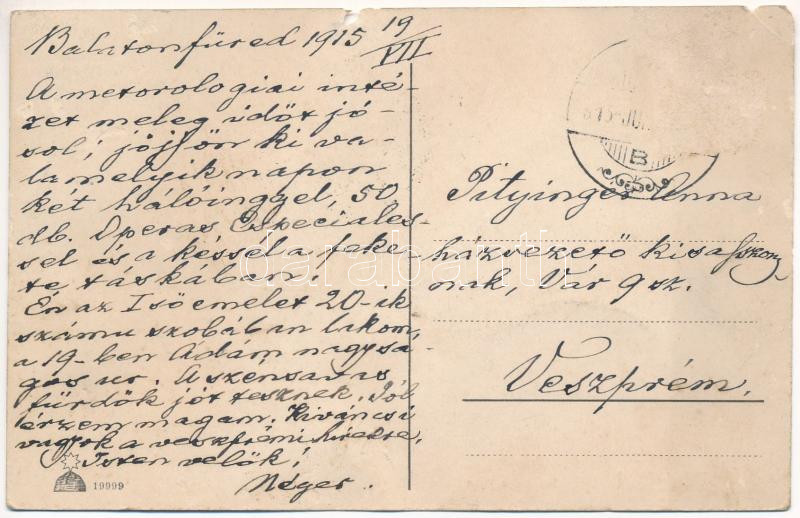 Balatonfüred 1915 19/VII
A metorologiai inté-
zet meleg időt jó-
sol; jöjjön ki va-
lamelyik napon
két hálóinggel, 50
db. Operas Especiales-
sel és a késsel a feke-
te táskában!
Én az Iső emelet 20-ik
számu szobában lakom,
a 19-ben Ádám nagysá-
gos ur. A szénsavas
fürdők jót tesznek. Jól
érzem magam. Kiváncsi
vagyok a veszprémi hirekre.
Isten velök!
19999
B
Pityinger Anna
házvezető kisasszony
nak, Vár 9 sz.
Veszprém.
darabanth